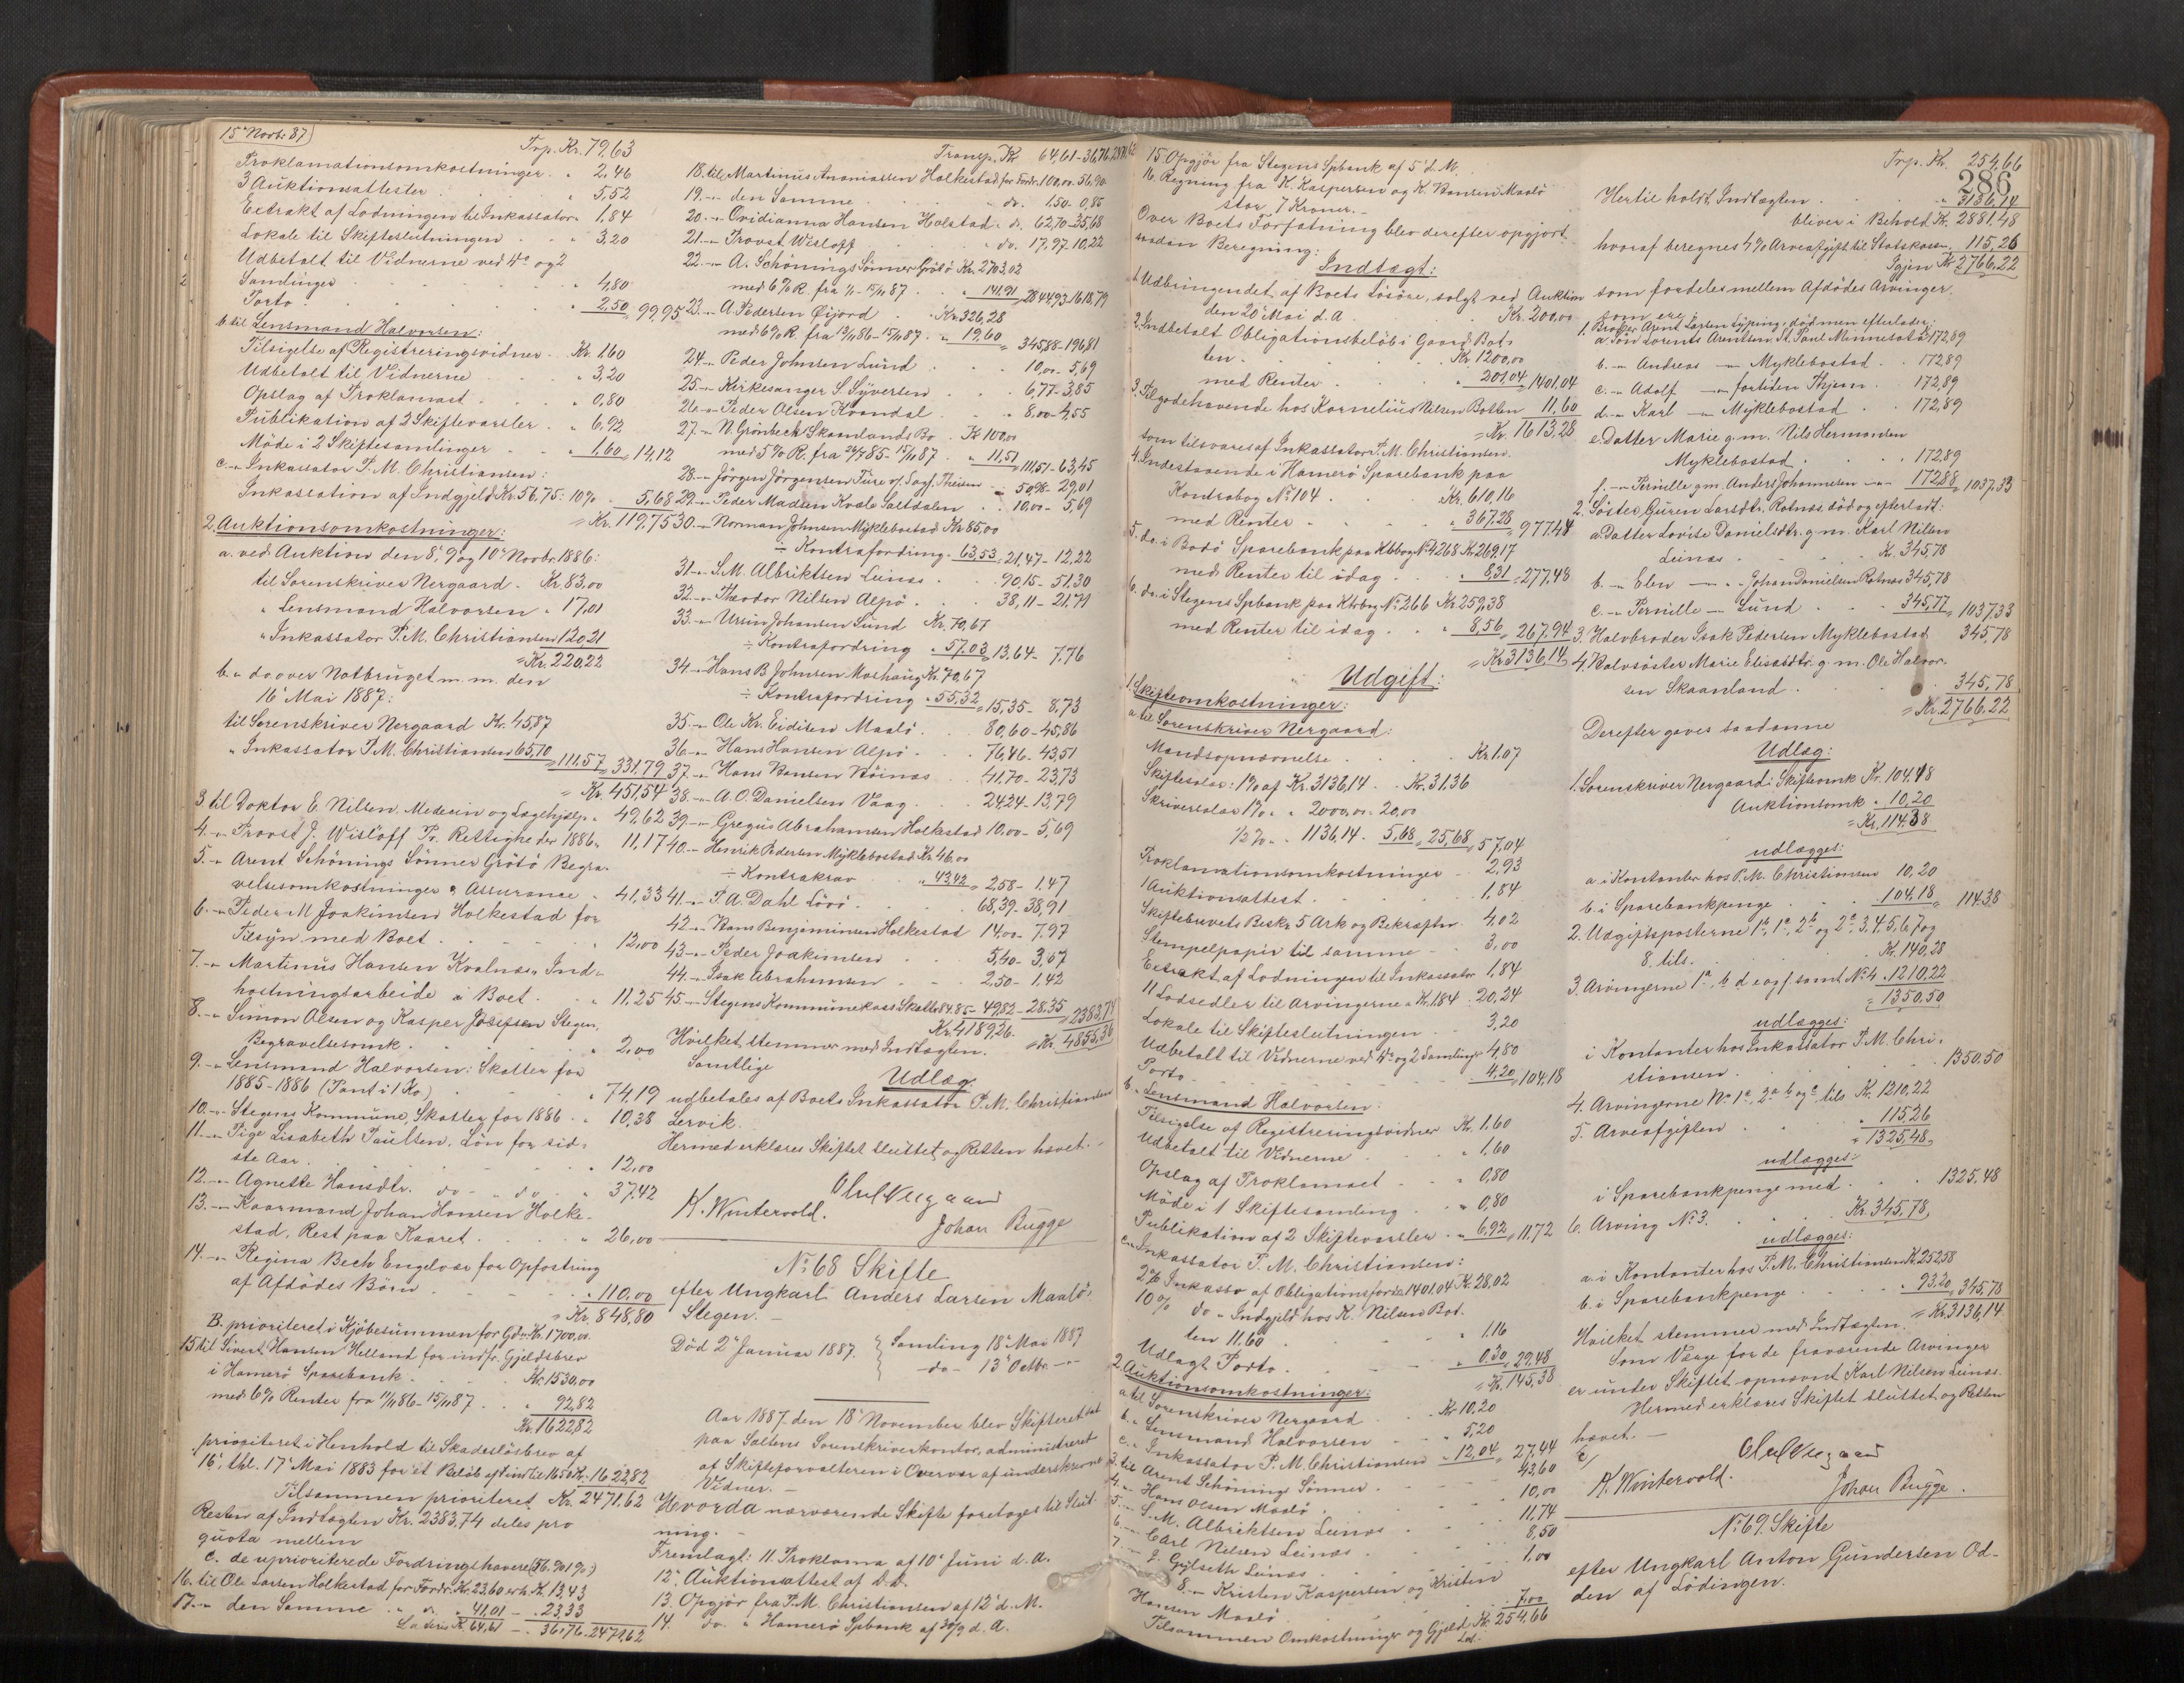 15' Novb: 87
Trp. Kr. 79,63
Proklamationsomkostninger. " 2,46
3 Auktionsattester . . " 5,52
Extrakt af Lodningen til Inkassator " 1,84
Lokale til Skifteslutningen . . " 3,20
Udbetalt til Vidnerne ved 4de og 2
Samlinger . . . " 4,80
Porto . . . " 2,50 = 99,95
b. til Lensmand Halvorsen:
Tilsigelse af Registreringsvidner. Kr. 1,60
Udbetalt til Vidnerne . . " 3,20
Opslag af Proklamaet . . " 0,80
Publikation af 2 Skiftevarsler . " 6,92
Möde i 2 Skiftesamlinger . " 1,60 = 14,12
c. -"- Inkassator P. M. Christiansen:
Inkassation af Indgjeld Kr. 56,75: 10% . 5,68
= Kr. 119,75
2. Auktionsomkostninger:
a. ved Auktion den 8', 9' og 10' Novbr. 1886:
til Sorenskriver Nergaard. Kr. 83,00
" Lensmand Halvorsen " 17,01
" Inkassator P. M. Christiansen 120,21
= Kr. 220,22
b. " do over Notbruget m. m. den
16' Mai 1887:
til Sorenskriver Nergaard Kr. 45,87
" Inkassator P. M. Christiansen 65,70 = 111,57 = 331,79
= Kr. 451,54
3 til Doktor E. Nilsen. Medecin og Lægehjælp. " 49,62
4. -"- Provst J. Wislöff Pr. Rettigheder 1886 " 11,17
5. -"- Arent Schönings Sönner Grötö Begra-
velsesomkostninger & Assurance . " 41,33
6. -"- Peder M Joakimsen Holkestad for
Tilsyn med Boet . . . " 12,00
7. -"- Martinus Hansen Kvalnæs. Ind-
höstningsarbeide i Boet . . " 11,25
8. -"- Simon Olsen og Kasper Josefsen Stegen,
Begravelsesomk. . . " 2,00
9. -"- Lensmand Halvorsen: Skatter for
1885-1886 (Pant i 1 Ko) . . " 74,19
10. -"- Stegens Kommune, Skatter for 1886 . " 10,38
11. -"- Pige Lisabeth Paulsen. Lön for sid-
ste Aar . . . " 12,00
12. -"- Agnette Hansdtr. do - do . " 37,42
13. -"- Kaarmand Johan Hansen Holke-
stad, Rest paa Kaaret . . " 26,00
14. -"- Regina Bech Engelvær for Opfostring
af Afdödes Börn . . " 110,00
= Kr. 848,80
B. prioriteret i Kjöbesummen for Gdn Kr. 1700,00.
15 til Sivert Hansen Helland for indfr. Gjeldsbrev
i Hamerö Sparebank . Kr. 1530,00
med 6% Renter fra 11/11 86 - 15/11 87 . " 92,82
Kr. 1622,82
prioriteret i Henhold til Skadeslösbrev af
16', thl. 17' Mai 1883 for et Belöb af indtil 1650 Kr. 1622,82
Tilsammen prioriteret Kr. 2471,62
Resten af Indtægten Kr. 2383,74 deles pro
quota mellem
C. de uprioriterede Fordringshavere (56,901%)
16. til Ole Larsen Holkestad for Fordr. Kr. 23,60 erh. K. 13,43
17. -"- den Samme . " do " 41,01 - " 23,33
Lateris K. 64,61 - " 36,76. 2471,62
Transp. Kr 64,61 - 36,76. 2471,62
18. til Martinus Ananiassen Holkestad for Fordr. 100,00 - 56,90
19. -"- den Samme . . " do. 1,50 - 0,85
20. -"- Ovidianna Hansen Holstad " do. 62,70 - 35,68
21. -"- Provst Wislöff . . " do. 17,97 - 10,22
22. -"- A. Schönings Sönner Grötö Kr. 2703,02
med 6% R. fra 1/1 - 15/11 87 . " 141,91 = 2844,93 - 1618,79
23. -"- A. Pedersen Öijord . . Kr. 326,28
med 6% R. fra 13/11 86 - 15/11 87 . " 19,60 = 345,88 - 196,81
24. -"- Peder Johnsen Lund . . . 10,00 - 5,69
25. -"- Kirkesanger S. Syversen . . . 6,77 - 3,85
26. -"- Peder Olsen Kvandal . . " 8,00 - 4,55
27. -"- N. Grönbech's Skaanlands Bo . Kr 100,00
med 5% R. fra 26/7 85 - 15/11 87 . " 11,51 = 111,51 - 63,45
28. -"- Jörgen Jörgensen Ture v/ Sagf. Theisen " 50,98 - 29,01
29. -"- Peder Madsen Kvale Saltdalen . . 10,00 - 5,69
30. -"- Norman Johnsen Myklebostad Kr 85,00
÷ Kontrafordring " 63,53 = 21,47 - 12,22
31. -"- S. M. Albriktsen Leinæs . . 90,15 - 51,30
32. -"- Theodor Nilsen Alpö . . . 38,11 - 21,71
33. -"- Ursin Johansen Lund Kr. 70,67
÷ Kontrafordring " 57,03 = 13,64 - 7,76
34. -"- Hans B. Johnsen Moshaug Kr 70,67
÷ Kontrafordring . " 55,32 = 15,35 - 8,73
35. -"- Ole Kr. Eidissen Maalö . . 80,60 - 45,86
36. -"- Hans Hansen Alpö . . . 76,46 - 43,51
37. -"- Hans Hansen Böinæs . . 41,70 - 23,73
38. -"- A. O. Danielsen Vaag . . . 24,24 - 13,79
39. -"- Gregus Abrahamsen Holkestad 10,00 - 5,69
40. -"- Henrik Pedersen Myklebostad Kr 46,00
÷ Kontrakrav . . " 43,42 = 2,58 - 1,47
41. -"- P. A. Dahl Lövö . . . 68,39 - 38,91
42. -"- Hans Benjaminsen Holkestad 14,00 - 7,97
43. -"- Peder Joakimsen . . 5,40 - 3,07
44. -"- Isak Abrahamsen . . 2,50 - 1,42
45. -"- Stegens Kommunekasse Skatter 84.85 - 49,82 - 28,35 = 2383,74
Kr. 4189,36. = Kr. 4855,36
Hvilket stemmer med Indtægten.
Samtlige
Udlæg
udbetales af Boets Inkassator P. M. Christiansen
Lervik.
Hermed erklæres Skiftet sluttet og Retten hævet. -
Oluf Nergaard
K. Wintervold.
Johan Bugge
No 68 Skifte
efter Ungkarl Anders Larsen Maalö,
Stegen. -
Död 2' Januar 1887. Samling 18' Mai 1887
- do - 13' Octbr. -"-
Aar 1887 den 18' November blev Skifteret sat
paa Saltens Sorenskriverkontor, administreret
af Skifteforvalteren i Overvær af underskrevne
Vidner. -
Hvorda nærværende Skifte foretoges til Slut-
ning. -
Fremlagt: 11. Proklama af 10' Juni d. A.
12'. Auktionsattest af D.D.
13. Opgjör fra P. M. Christiansen af 12' d. M.
14. do. " Hamerö Spbank af 30/9 d. A.
15. Opgjör fra Stegens Spbank af 5' d. M.
16. Regning fra K. Kaspersen og K. Hansen Maalö
stor 7 Kroner. -
Over Boets Forfatning blev derefter opgjort
saadan Beregning:
Indtægt:
1. Udbringendet af Boets Lösöre, solgt ved Auktion
den 20' Mai d. A. . . Kr. 200,00
2. Indbetalt Obligationsbelöb i Gaard Bot-
ten . . . Kr 1200,00
med Renter . . " 201,04 = 1401,04
3. Tilgodehavende hos Kornelius Nilsen Botten 11,60
= Kr. 1613,28
som tilsvares af Inkassator P. M. Christiansen.
4. Indestaaende i Hamerö Sparebank paa
Kontrabog No 104 . . Kr. 610,16
med Renter . . " 367,28 = 977,48
5. do. i Bodö Sparebank paa Ktbbog No 4268 Kr. 269,17
med Renter til idag . . " 8,31 = 277,48
6. do. i Stegens Spbank paa Ktrbog No 266 Kr 259,38
med Renter til idag . . " 8,56 = 267,94
= Kr 3136,14
Udgift:
1. Skifteomkostninger:
a. til Sorenskriver Nergaard:
Mandsopnævnelse . . . Kr. 1,07
Skiftesalær: 1% af Kr. 3136,14 . . Kr. 31,36
Skriversalær 1% . " 2000,00 . 20,00
1/2 % " . 1136,14 . 5,68 = 25,68 = 57,04
Proklamationsomkostninger . 2,93
1 Auktionsattest . . . 1,84
Skiftebrevets Beskr. 5 Ark og Bekræftn. 4,02
Stempelpapir til samme . 3,00
Extrakt af Lodningen til Inkassator 1,84
11 Lodsedler til Arvingerne a Kr. 1,84 . 20,24
Lokale til Skifteslutningen . . 3,20
Udbetalt til Vidnerne ved 4de og 2 Samlinger 4,80
Porto . . . 4,20 = 104,18
b. " Lensmand Halvorsen:
Tilsigelse af Registreringsvidner Kr. 1,60
Udbetalt til Vidnerne . . " 1,60
Opslag af Proklamaet . . " 0,80
Möde i 1 Skiftesamling . . " 0,80
Publikation af 2 Skiftevarsler . " 6,92 = 11,72
c. " Inkassator P. M. Christiansen:
2% Inkasso af Obligationsfordr. 1401,04 Kr. 28,02
10% do " Indgjeld hos K. Nilsen Bot-
ten 11,60 . . " 1,16
Udlagt Porto . . " 0,30 = 29,48
= Kr. 145,38
2. Auktionsomkostninger:
a. til Sorenskriver Nergaard . . Kr 10,20
b. " Lensmand Halvorsen . . " 5,20
c. " Inkassator P. M. Christiansen " 12,04 = 27,44
3. til Arent Schönings Sönner . . 43,60
4. -"- Hans Olsen Maalö . . 10,00
5. -"- S. M. Albriktsen Leinæs . . 11,74
6. -"- Carl Nilsen Leinæs . . 8,50
7. -"- J. Gylseth Leinæs . . 1,00
8. -"- Kristen Kaspersen og Kristen
Hansen Maalö . . 7,00
Tilsammen Omkostninger og Gjeld Kr. 254,66
Lat.
Trp. Kr. 254,66
286
Hertil holdt Indtægten . . " 3136,14
bliver i Behold Kr. 2881,48
hvoraf beregnes 4% Arveafgift til Statskassen. 115,26
Igjen Kr 2766,22
som fordeles mellem Afdödes Arvinger,
som ere:
1. Broder Arent Larsen Lyping, död men efterlader:
a. Sön Lorents Arentsen St. Paul Minnesota 172,89
b. -"- Andreas -"- Myklebostad . . 172,89
c. -"- Adolf -"- fortiden Thjem . 172,89
d. -"- Karl -"- Myklebostad . . 172,89
e. Datter Marie g. m. Nils Hermansen
Myklebostad . . . 172,89
f. -"- Pernille g. m. Anders Johannesen -"- 172,88 = 1037,33
2. Söster Guren Larsdtr. Rotnæs död og efterladt:
a. Datter Lovise Danielsdtr. g. m. Karl Nilsen
Leinæs . . . Kr. 345,78
b. -"- Elen -"- " Johan Danielsen Rotnæs 345,78
c. -"- Pernille -"- Lund . . . 345,77 = 1037,33
3. Halvbroder Isak Pedersen Myklebostad 345,78
4. Halvsöster Marie Eliasdtr. g. m. Ole Halvor-
sen Skaanland . . . 345,78
= Kr. 2766,22
Derefter gaves saadanne
Udlæg:
1. Sorenskriver Nergaard i Skifteomk Kr. 104,18
Auktionsomk . 10,20
= Kr. 114,38
udlægges:
a. i Kontanter hos P. M. Christiansen 10,20
b. i Sparebankpenge . . 104,18 = 114,38
2. Udgiftsposterne 1b, 1c, 2b og 2c, 3, 4, 5, 6, 7 og
8. tils. . . . Kr. 140,28
3. Arvingerne 1a, b d e og f samt No 4 . 1210,22
= 1350,50
udlægges:
i Kontanter hos Inkassator P. M. Chri-
stiansen . . . 1350,50
4. Arvingerne No 1c, 2a b og c, tils Kr. 1210,22
5. Arveafgiften . . " 115,26
" 1325,48
udlægges:
i Sparebankpenge med . . . 1325,48
6. Arving No 3. . . Kr. 345,78
udlægges:
a. i Kontanter hos P. M. Christiansen Kr. 252,58
b. i Sparebankpenge . . " 93,20 = 345,78
= Kr. 3136,14
Hvilket stemmer med Indtægten.
Som Værge for de fraværende Arvinger
er under Skiftet opnævnt Karl Nilsen Leinæs.
Hermed erklæres Skiftet sluttet og Retten
hævet. -
Oluf Nergaard
K. Wintervold.
Johan Bugge.
No 69. Skifte
efter Ungkarl Anton Gundersen Od-
den af Lödingen.